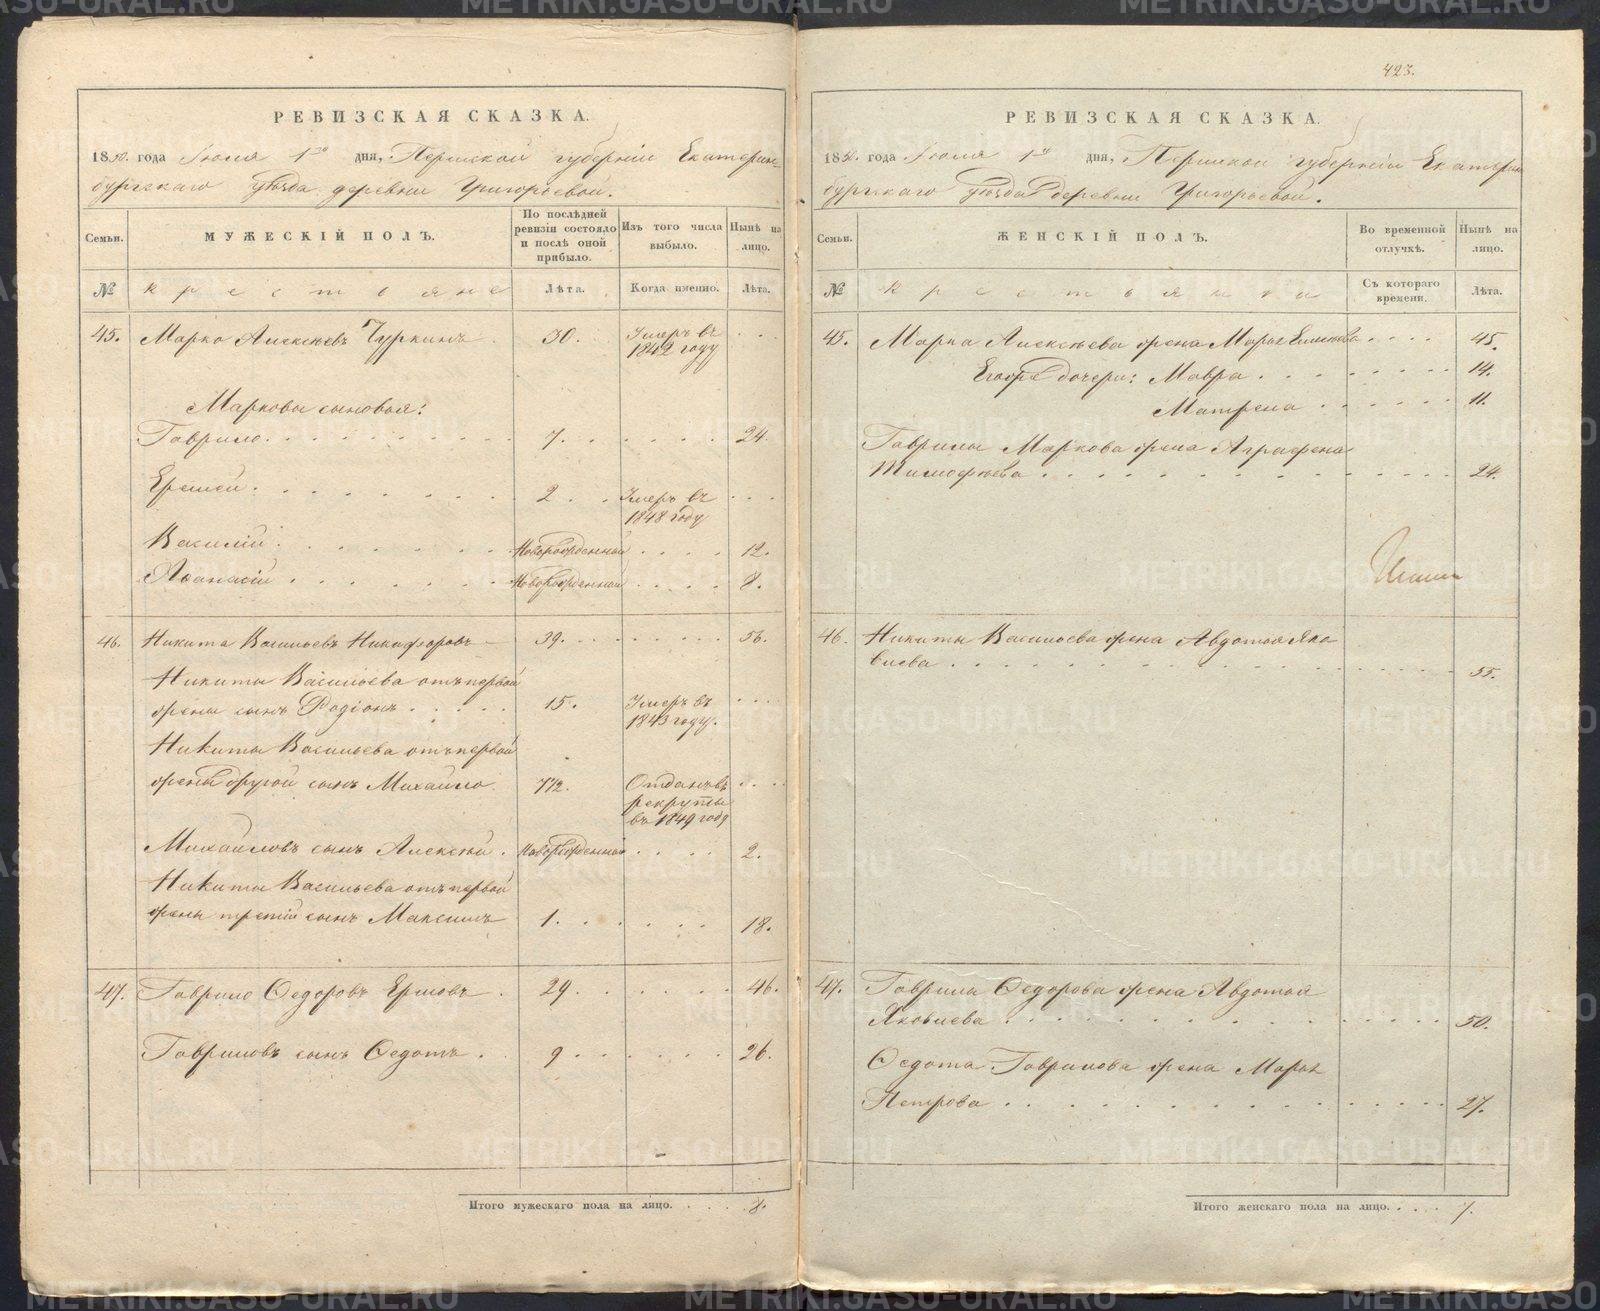 423.
РЕВИЗСКАЯ СКАЗКА.
1850. года Іюля 1го дня, Пермской губерніи Екатерин-
бургскаго уѣзда деревни Григорьевой.
Семьи.
МУЖЕСКІЙ ПОЛЪ.
По послѣдней ревизіи состояло и послѣ оной прибыло.
Изъ того числа выбыло.
Нынѣ на лицо.
№ крестьяне Лѣта. Когда именно. Лѣта.
45. Марко Алексѣевъ Чуркинъ 30. Умеръ въ 1842 году . . .
Марковы сыновья:
Гаврило. . . . . . . . . . 7. . . . . . 24.
Еремей. . . . . . . . 2. . . Умеръ въ 1848 году . . .
Василій. . . . . . . Новорожденный . . . . 12.
Аѳанасій . . . . . . . Новорожденный . . . . 8.
46. Никита Васильевъ Никифоровъ 39. . . . . . . 56.
Никиты Васильева отъ первой
жены сынъ Родіонъ . . . . . 15. Умеръ въ 1843 году. . . .
Никиты Васильева отъ первой
жены другой сынъ Михайло 7 1/2. Отданъ въ рекруты въ 1849 году . . .
Михайловъ сынъ Алексѣй . Новорожденный . . . . 2.
Никиты Васильева отъ первой
жены третій сынъ Максимъ 1. . . . . . 18.
47. Гаврило Ѳедоровъ Ермовъ . 29. . . . . . 46.
Гавриловъ сынъ Ѳедотъ . 9. . . . . . 26.
Итого мужескаго пола на лицо. . . . . 8.
РЕВИЗСКАЯ СКАЗКА.
1850. года Іюля 1го дня, Пермской губерніи Екатерин-
бургскаго уѣзда деревни Григорьевой.
Семьи.
ЖЕНСКІЙ ПОЛЪ.
Во временной отлучкѣ.
Нынѣ на лицо.
№ Крестьянки Съ котораго времени. Лѣта.
45. Марка Алексѣева жена Марья . . . . 45.
Егожъ дочери: Мавра . . . . . . . . 14.
Матрена . . . . . . 11.
Гаврилы Маркова жена Аграфена
Тимофѣева . . . . . . . . . . . . . 24.
46. Никиты Васильева жена Авдотья Яко
влева . . . . . . . . . . . . . . . 55.
47. Гаврилы Ѳедорова жена Авдотья
Яковлева . . . . . . . . . . . . . 50.
Ѳедота Гаврилова жена Марья
Петрова . . . . . . . . . . . . . 27.
Итого женскаго пола на лицо. . . . 7.
METRIKI.GASO-URAL.RU